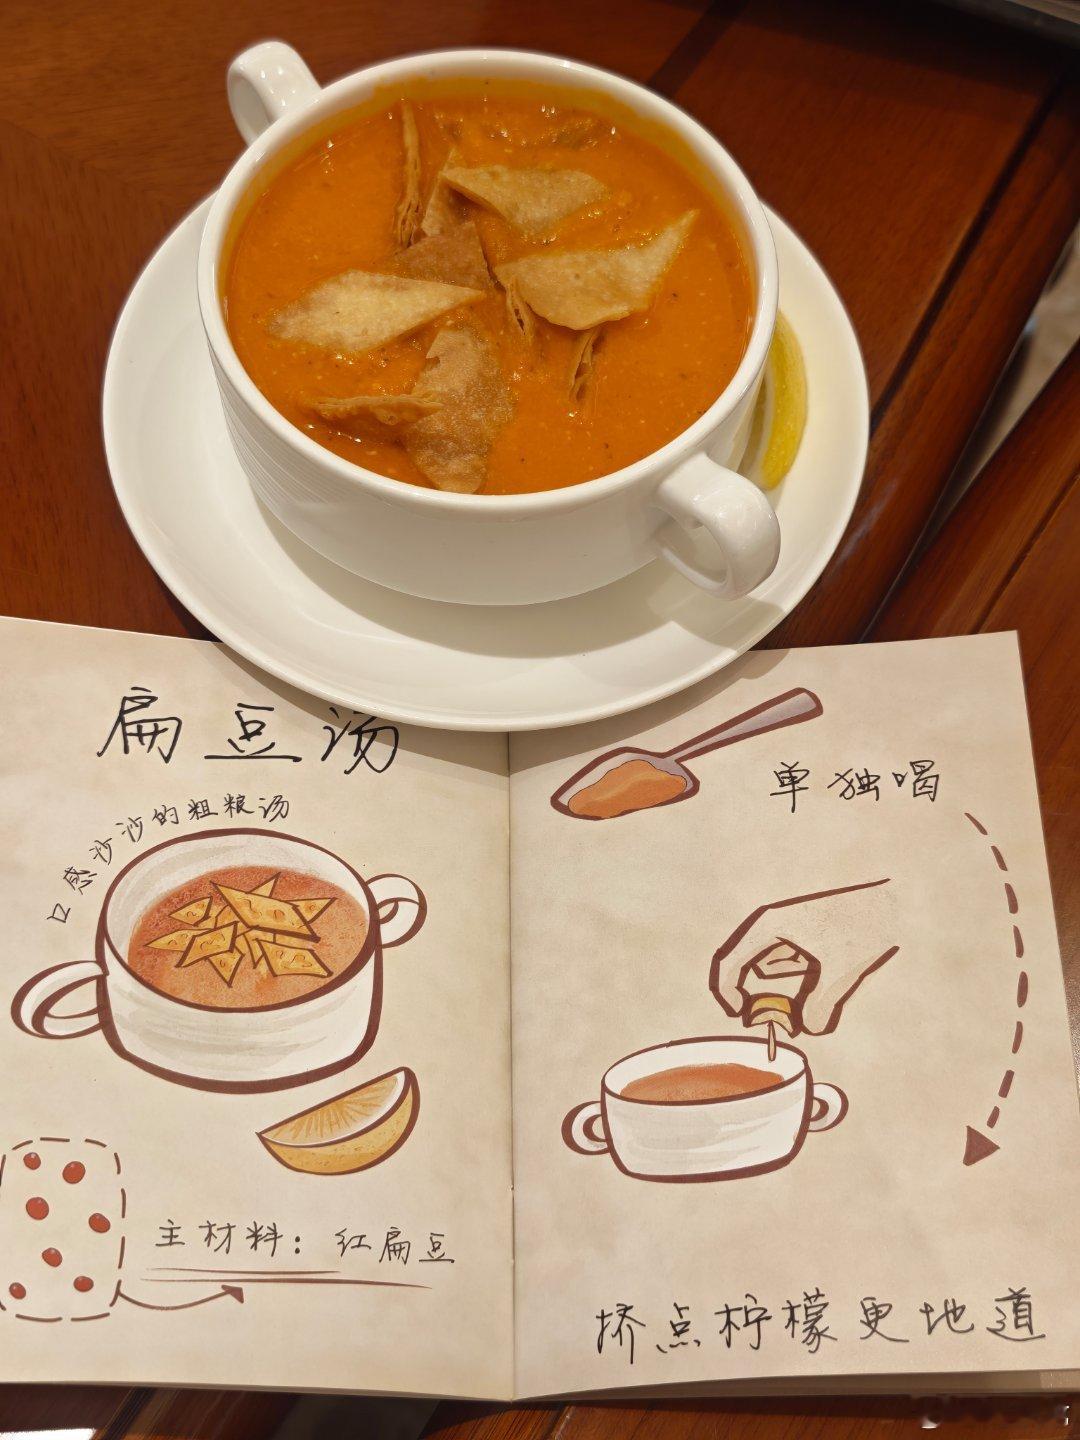 扁豆汤
口感沙沙的粗粮汤
主材料：红扁豆
单独喝
挤点柠檬更地道